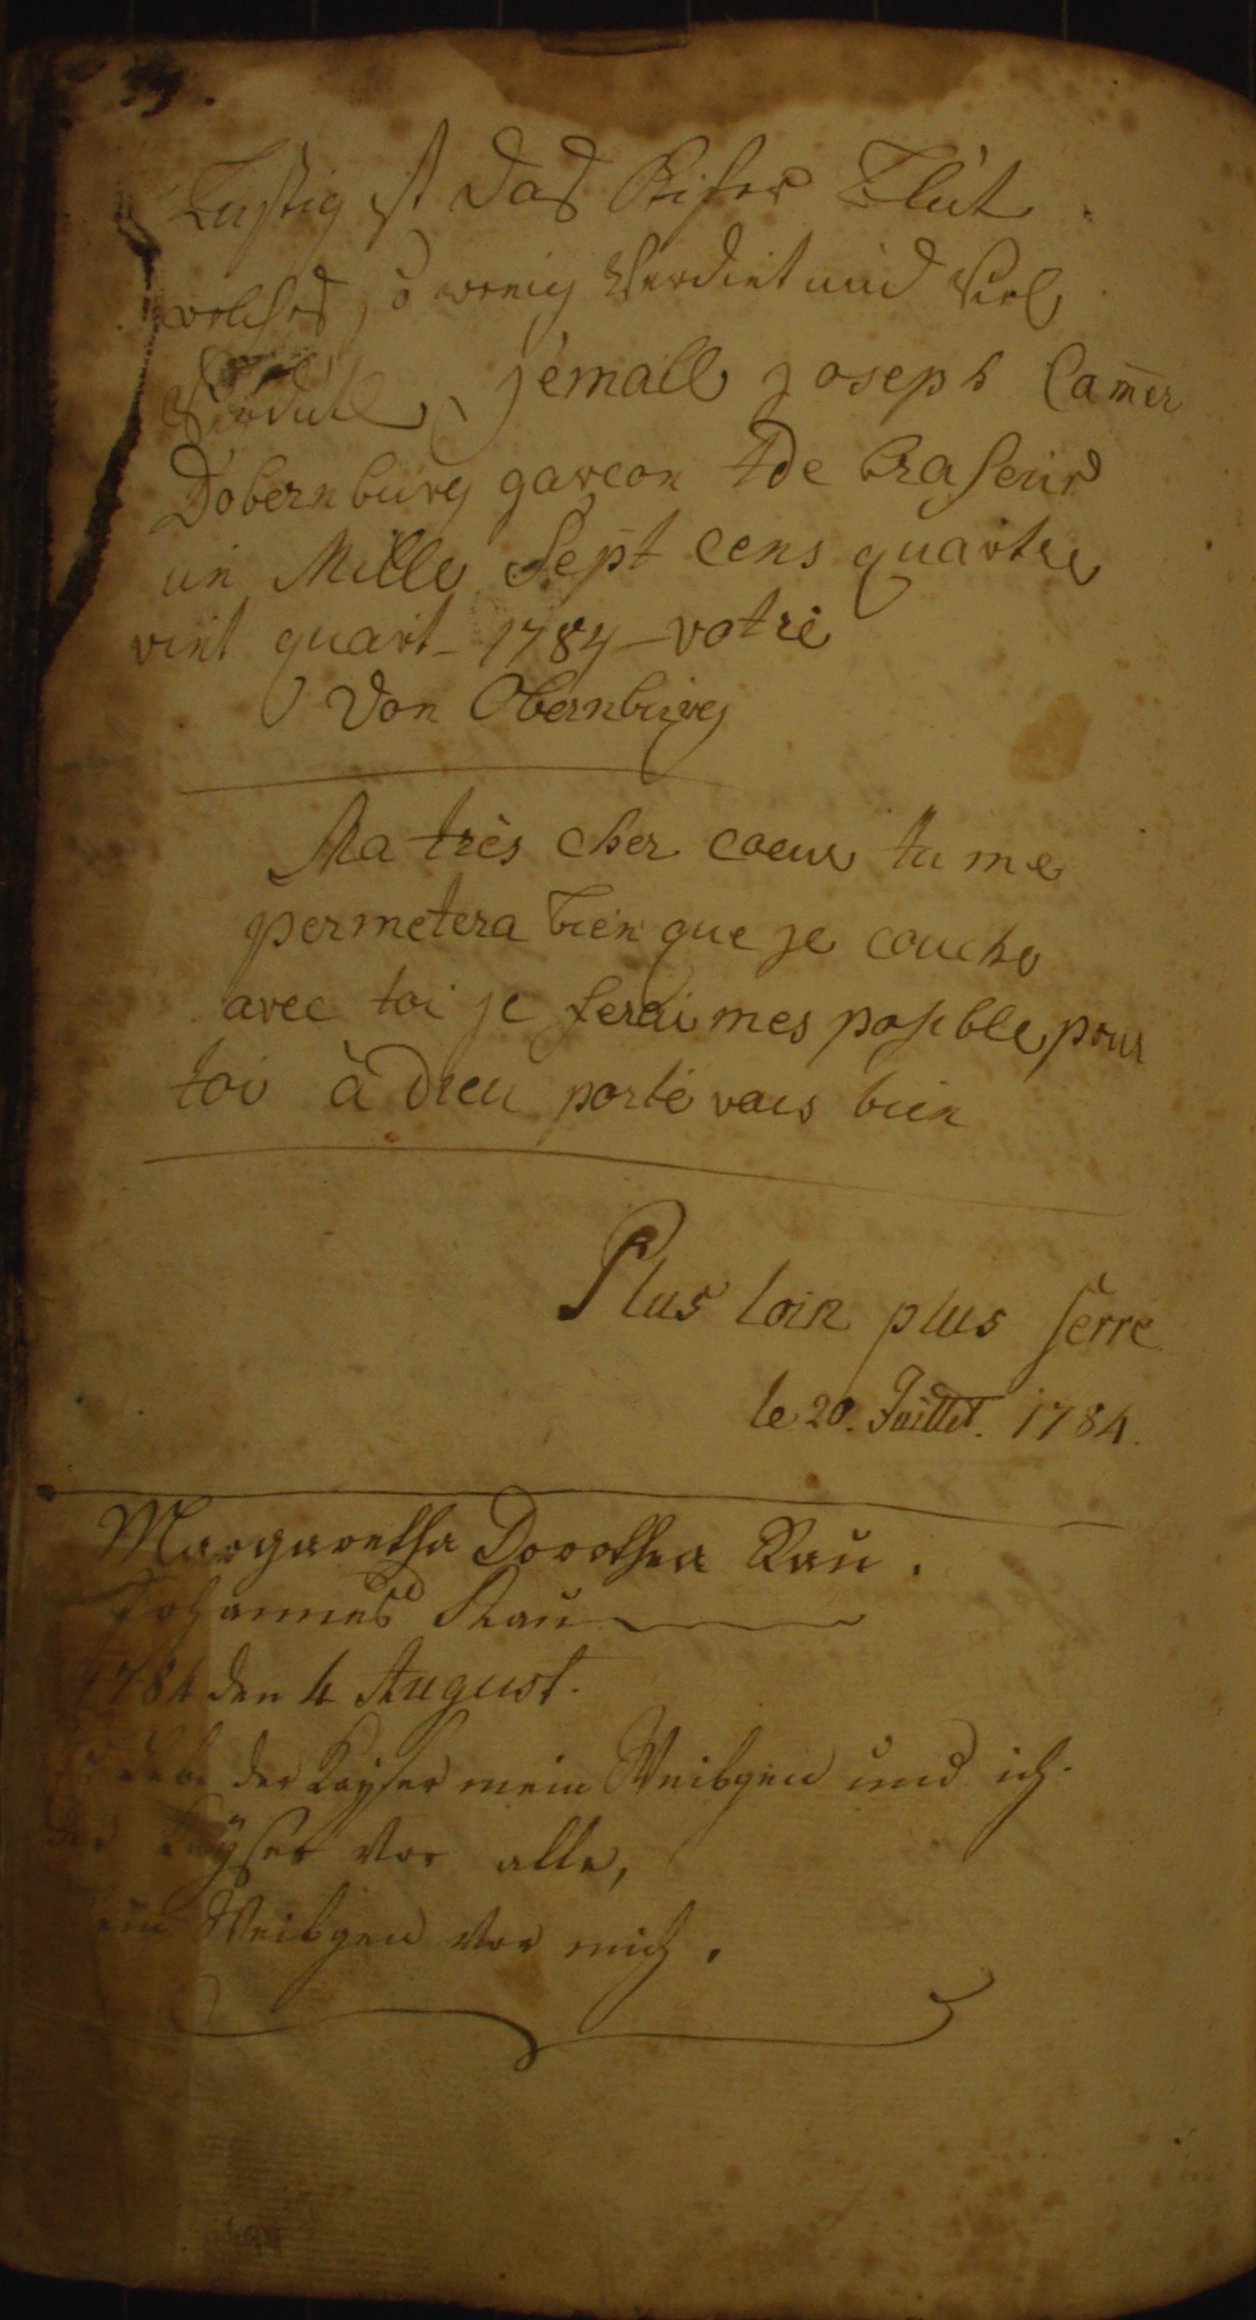 Lustig ist das Kifer Blut
welches so wenig Verdint und Viel
jémall joseph Cam̄er
Dobernburg garcon de braseur
un Mille Sept cens quartre
vint quart - 1784 - votre
Von Obernburg
Ma très cher coeur tu me
permetera bien que je couche
avec toi je ferai mes posible pour
toi à Dieu porté vous bien
Plus loin plus serré
le 20. Juillet. 1784.
Margaretha Dorothea Rau.
Johannes Rau
1784 den 4 August.
der Kayser mein Weibgen und ich.
Kayser vor alle,
Weibgen vor mich.